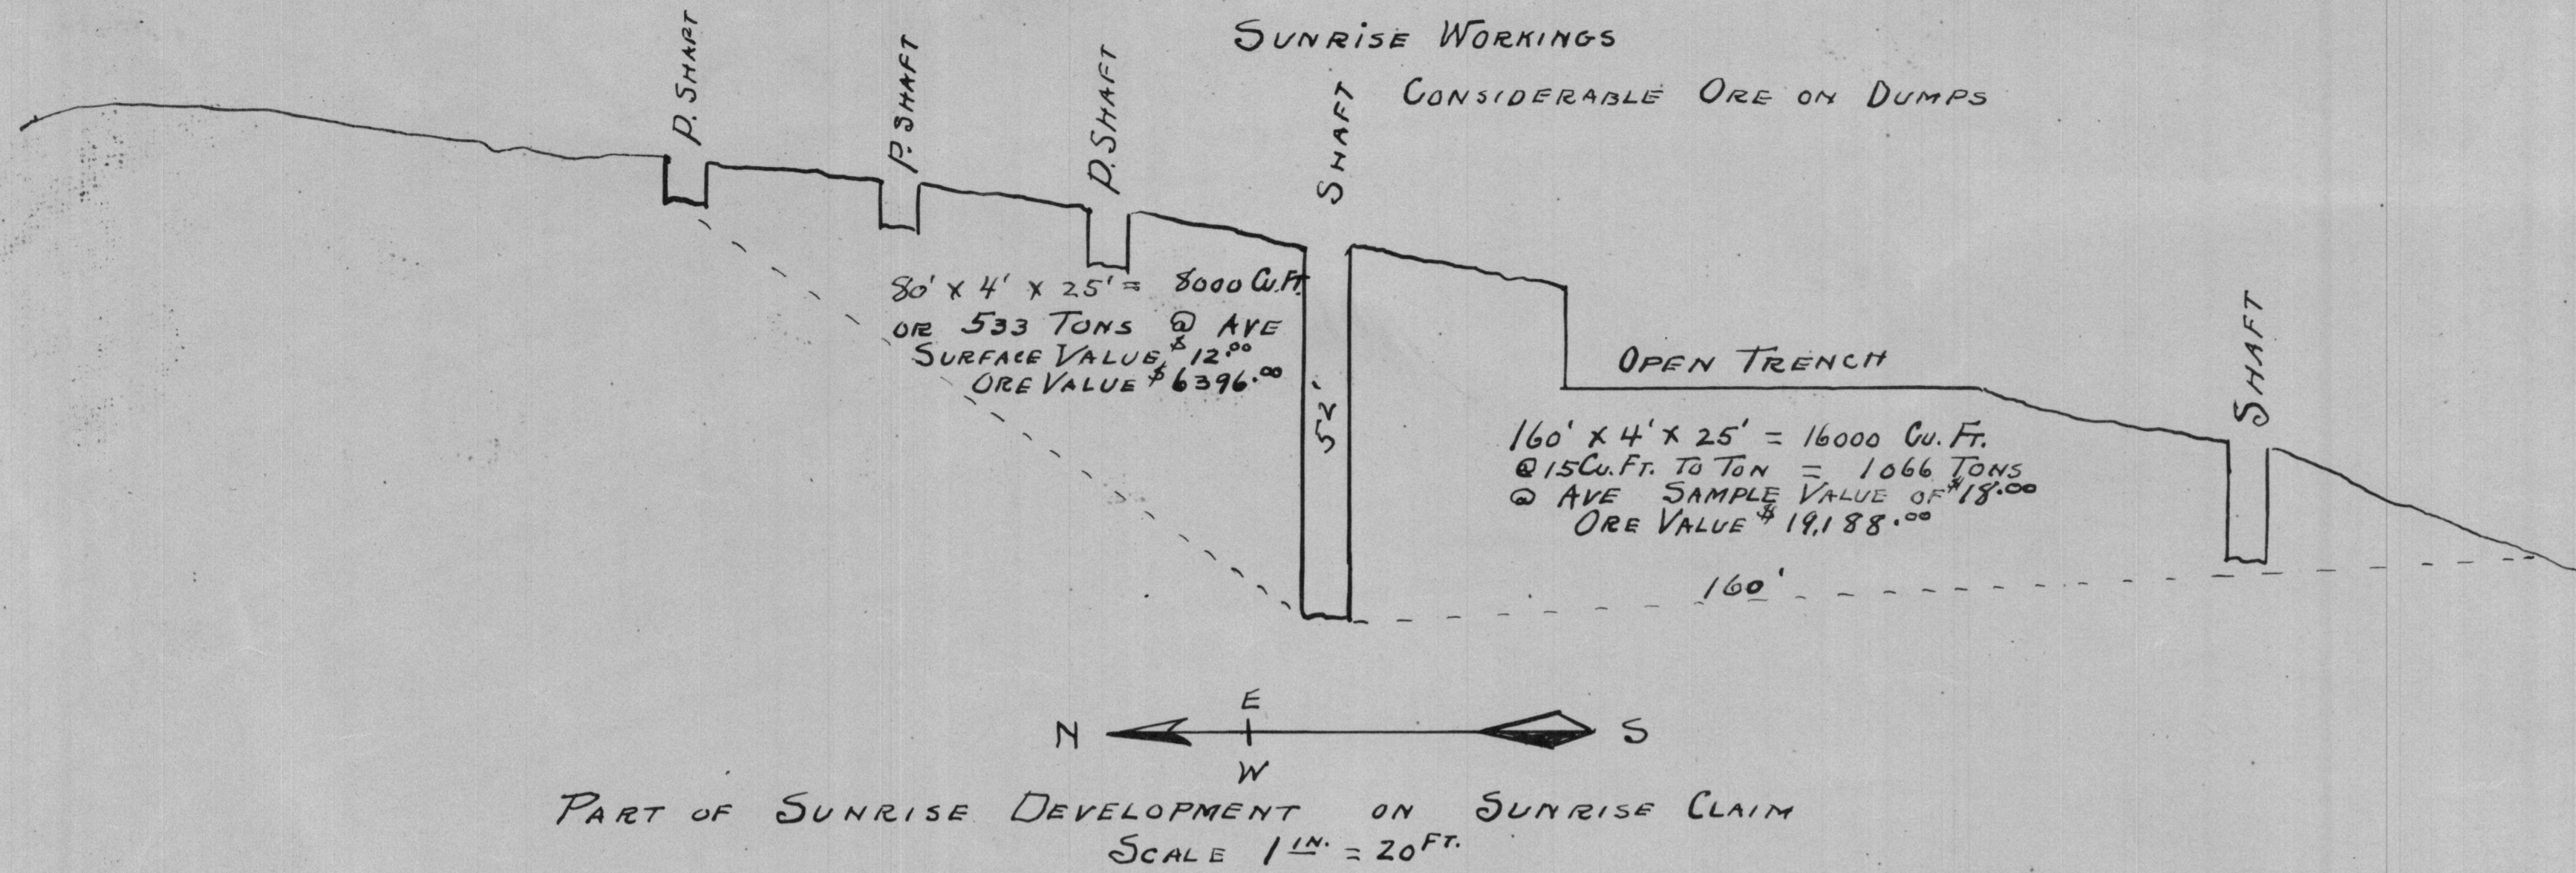 SUNRISE WORKINGS
CONSIDERABLE ORE ON DUMPS
P. SHAFT
P. SHAFT
P. SHAFT
SHAFT
80' X 4' X 25' = 8000 CU.FT.
OR 533 TONS @ AVE
SURFACE VALUE $12.00
ORE VALUE $6396.00
52'
OPEN TRENCH
SHAFT
160' X 4' X 25' = 16000 CU. FT.
@ 15 CU. FT. TO TON = 1066 TONS
@ AVE SAMPLE VALUE OF $18.00
ORE VALUE $19,188.00
160'
E
N S
W
PART OF SUNRISE DEVELOPMENT ON SUNRISE CLAIM
SCALE 1 IN. = 20 FT.